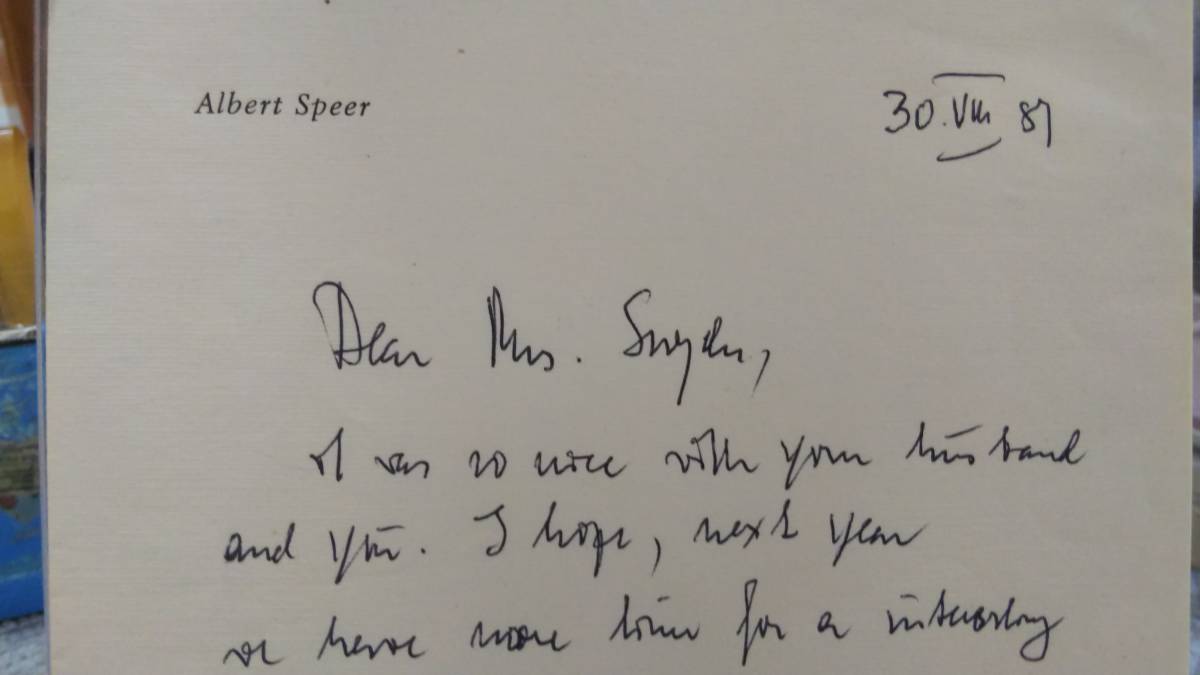 Albert Speer
30. VIII 81
Dear Mrs. Snyder,
it was so nice with your husband
and you. I hope, next year
we have more time for a interesting